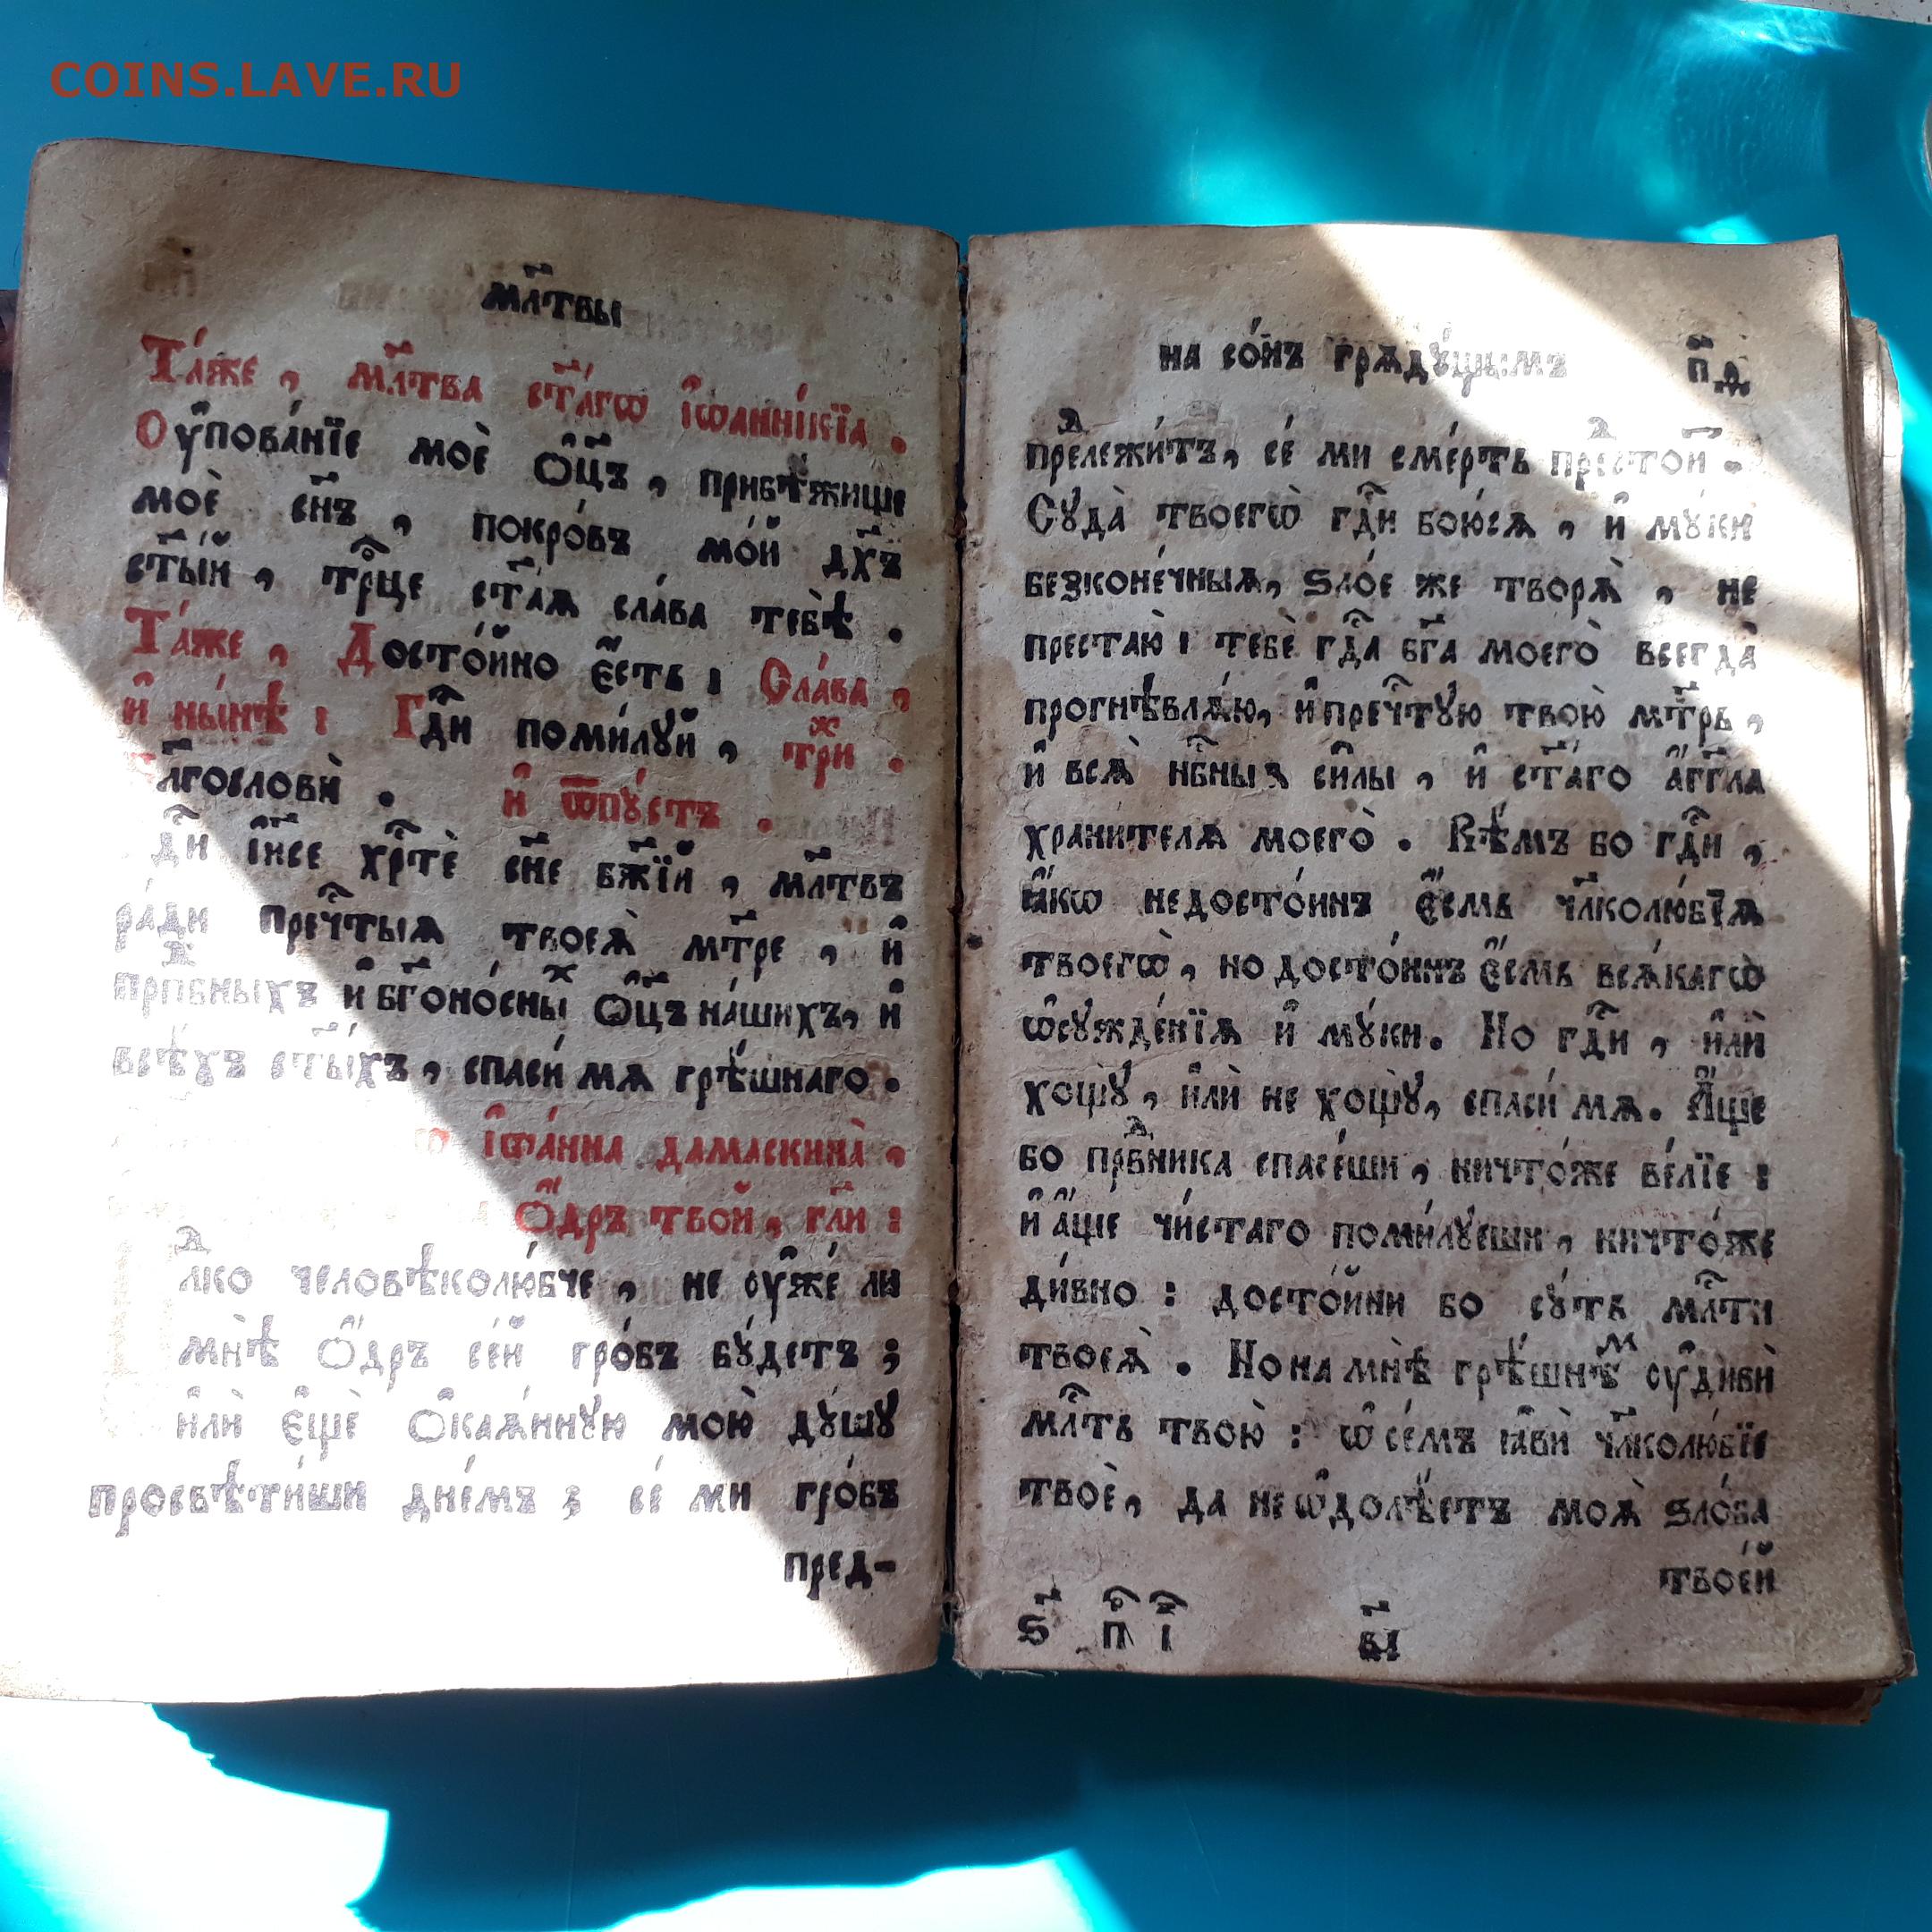 COINS.LAVE.RU
мл҃твы
Та́же , мл҃тва ст҃а́гѡ і҆ѡанни́кїа .
Оу҆пова́нїе моѐ ѻ҆ц҃ъ , прибѣ́жище
моѐ сн҃ъ , покро́въ мо́й дх҃ъ
ст҃ы́й , трⷪ҇це ст҃а́ѧ сла́ва тебѣ̀ .
Та́же , Досто́йно є҆́сть : Сла́ва ,
и҆ ны́нѣ : Гдⷭ҇и поми́луй , три́ⷤ .
лгⷭ҇ослови́ . и҆ ѿпу́стъ .
дⷭ҇и і҆и҃се хрⷭ҇тѐ сн҃е бж҃їй , мл҃твъ
ра́ди пречⷭ҇тыѧ твоеѧ̀ мт҃ре , и҆
прпⷣбныхъ и҆ бг҃оно́сныⷯ ѻ҆ц҃ъ на́шихъ , и҆
всѣ́хъ ст҃ы́хъ , спаси́ мѧ грѣ́шнаго .
і҆ѡа́нна дамаскина̀ ,
ѻ҆́дръ тво́й , гл҃и :
лⷣко человѣколю́бче , не оу҆же́ ли
мнѣ̀ ѻ҆́дръ се́й гро́бъ бу́детъ ;
и҆лѝ є҆щѐ ѻ҆каѧ́нную мою̀ ду́шу
просвѣти́ши дне́мъ ; се́ ми гро́бъ
пред-
на со́нъ грѧду́щымъ п҃д
преⷣлежи́тъ , се́ ми сме́рть преⷣстои́т .
Суда̀ твоегѡ̀ гдⷭ҇и бою́сѧ , и҆ му́ки
безконе́чныѧ , ѕло́е же творѧ̀ , не
престаю̀ : тебѐ гдⷭ҇а бг҃а моего̀ всегда̀
прогнѣвлѧ́ю , и҆ пречⷭ҇тую твою̀ мт҃рь ,
и҆ всѧ̀ нбⷭ҇ныѧ си́лы , и҆ ст҃а́го а҆́гг҃ла
храни́телѧ моего̀ . Вѣ́мъ бо гдⷭ҇и ,
ꙗ҆́кѡ недосто́инъ є҆́смь чл҃колю́бїѧ
твоегѡ̀ , но досто́инъ є҆́смь всѧ́кагѡ
ѡ҆сужде́нїѧ и҆ му́ки . Но гдⷭ҇и , и҆лѝ
хощу̀ , и҆лѝ не хощу̀ , спаси́ мѧ . А҆́ще
бо првⷣника спасе́ши , ничто́же ве́лїе :
и҆ а҆́ще чи́стаго поми́луеши , ничто́же
ди́вно : досто́йни бо су́ть млⷭ҇ти
твоеѧ̀ . Но на мнѣ̀ грѣ́шнѣⷨ оу҆дивѝ
млⷭ҇ть твою̀ : ѡ҆ се́мъ ꙗ҆вѝ чл҃колю́бїе
твоѐ , да не ѡ҆долѣ́етъ моѧ̀ ѕло́ба
твое́й
ѕ҃ п҃ і҃ в҃і